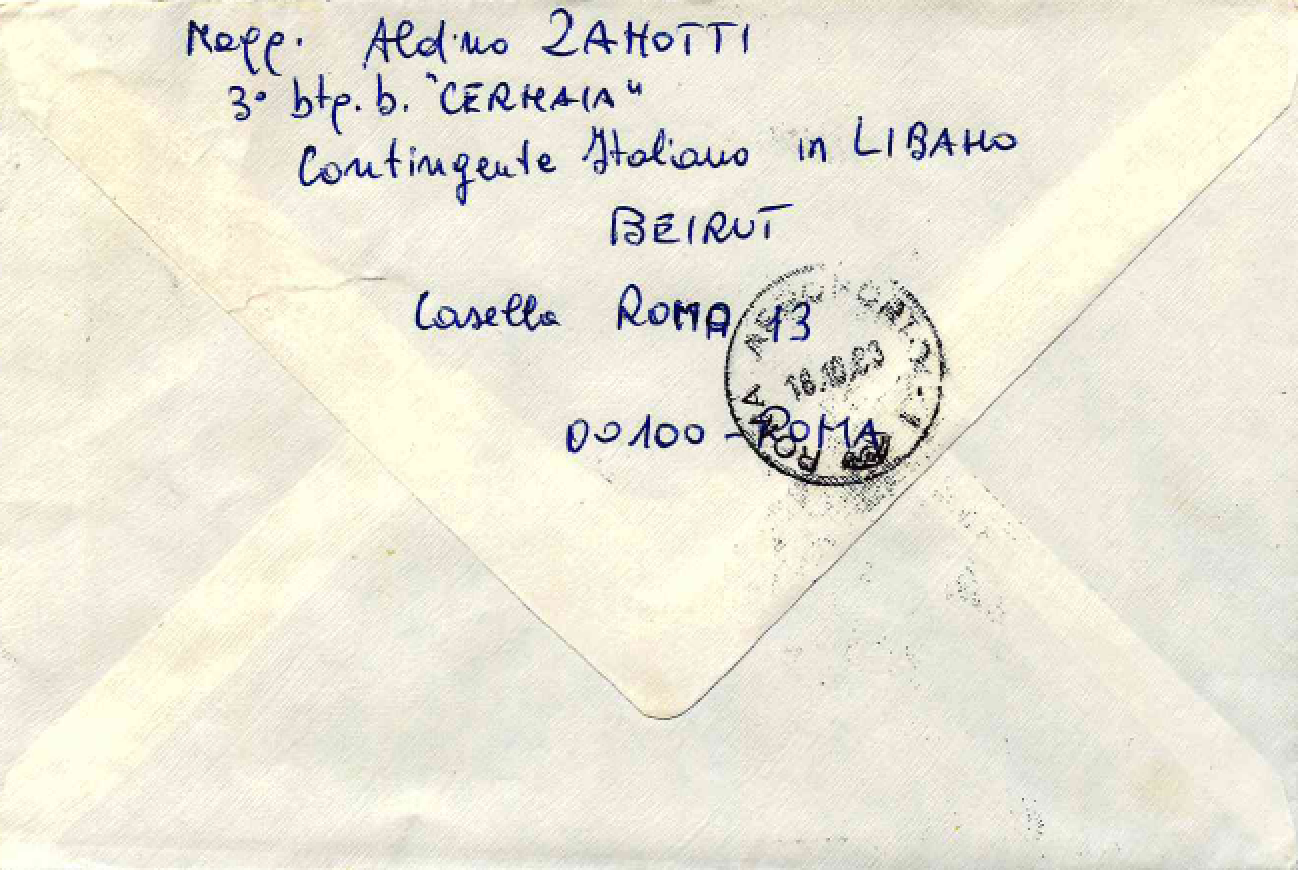 Magg. Aldino ZANOTTI
3° btg. b. "CERNAIA"
Contingente Italiano in LIBANO
BEIRUT
Casella ROMA 13
00100 - ROMA
ROMA AEROPORTO
18.10.83